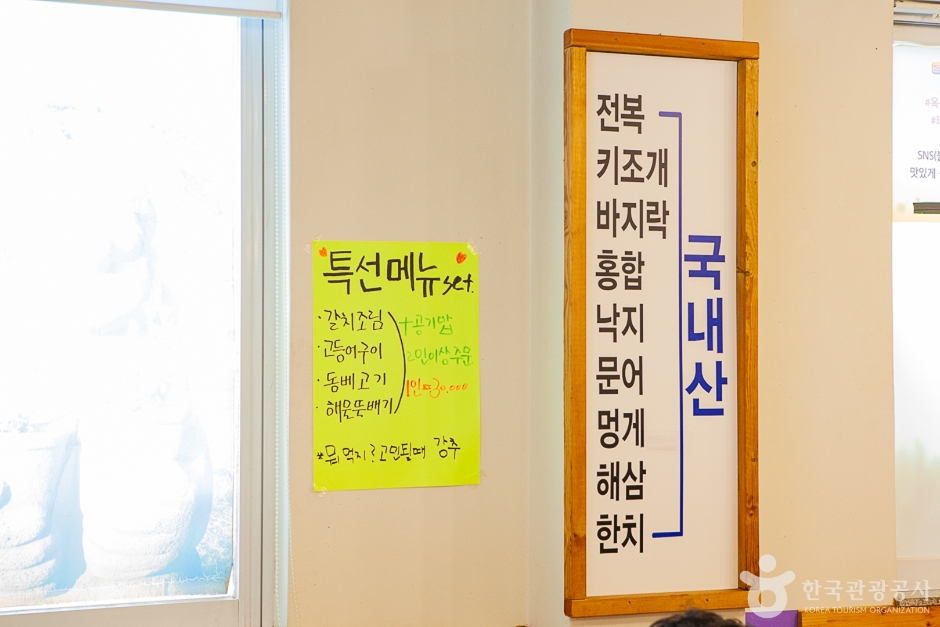 특선메뉴 set.
· 갈치조림 +공기밥
· 고등어구이 2인이상주문
· 돔베고기 1인 ₩30.000
· 해물뚝배기
*뭐먹지? 고민될때 강추
전복
키조개
바지락
홍합
낙지
문어
멍게
해삼
한치
국내산
SNS
맛있게
한국관광공사
KOREA TOURISM ORGANIZATION